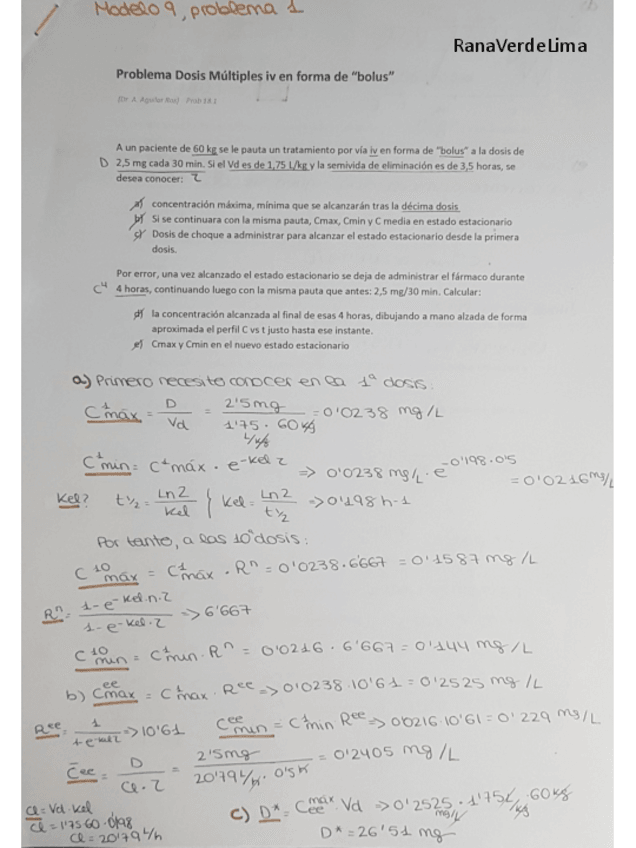 Modelo 9, problema 1
RanaVerdeLima
Problema Dosis Múltiples iv en forma de "bolus"
A un paciente de 60 kg se le pauta un tratamiento por vía iv en forma de "bolus" a la dosis de
D 2,5 mg cada 30 min. Si el Vd es de 1,75 L/kg y la semivida de eliminación es de 3,5 horas, se
desea conocer: τ
a) concentración máxima, mínima que se alcanzarán tras la décima dosis
b) Si se continuara con la misma pauta, Cmax, Cmin y C media en estado estacionario
c) Dosis de choque a administrar para alcanzar el estado estacionario desde la primera
dosis.
Por error, una vez alcanzado el estado estacionario se deja de administrar el fármaco durante
C4 4 horas, continuando luego con la misma pauta que antes: 2,5 mg/30 min. Calcular:
d) la concentración alcanzada al final de esas 4 horas, dibujando a mano alzada de forma
aproximada el perfil C vs t justo hasta ese instante.
e) Cmax y Cmin en el nuevo estado estacionario
a) Primero necesito conocer en la 1ª dosis:
C¹máx = D/Vd = 2'5mg/1'75 L/kg · 60kg = 0'0238 mg/L
C¹min = C¹máx · e^-kel τ => 0'0238 mg/L · e^-0'198·0'5 = 0'0216 mg/L
Kel? t½ = Ln2/Kel | Kel = Ln2/t½ => 0'198 h-1
Por tanto, a las 10ª dosis:
C10 máx = C¹máx · Rⁿ = 0'0238·6'667 = 0'1587 mg/L
Rⁿ = 1-e^-kel·n·τ/1-e^-kel·τ => 6'667
C10 min = C¹min · Rⁿ = 0'0216 · 6'667 = 0'144 mg/L
b) Cee max = C¹max · Ree => 0'0238·10'61 = 0'2525 mg/L
Ree = 1/1-e^-kel τ => 10'61 Cee min = C¹min Ree => 0'0216·10'61 = 0'229 mg/L
C̄ee = D/Cl·τ = 2'5mg/20'79 L/h · 0'5h = 0'2405 mg/L
Cl = Vd·kel c) D* = Cee máx · Vd => 0'2525 mg/L · 1'75 L/kg · 60kg
Cl = 1'75·60·0'198 D* = 26'51 mg
Cl = 20'79 L/h